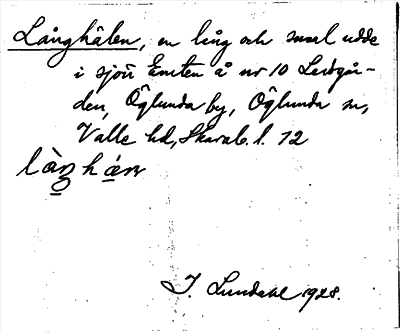 Långhälen, en lång och smal udde
i sjön Emten å nr 10 Ledsgår-
den, Öglunda by, Öglunda sn,
Valle hd, Skarab. l. 72
J. Lundahl 1928.